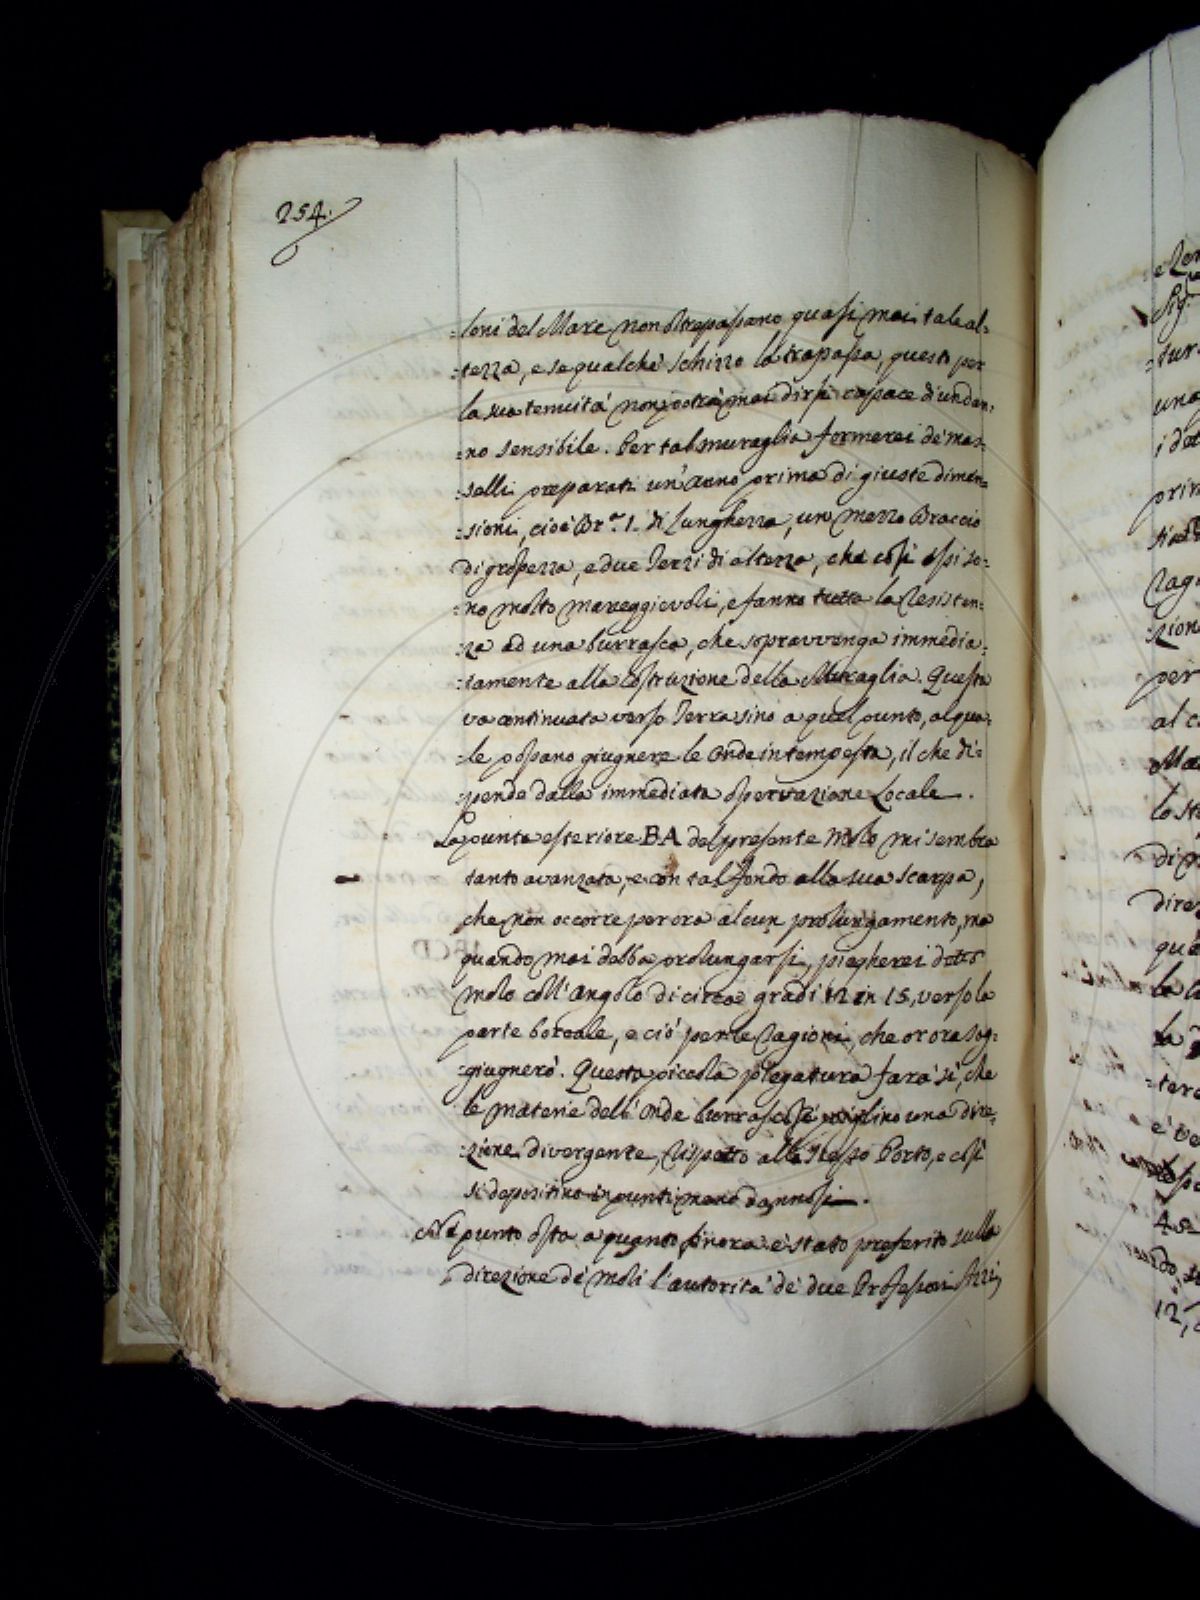 254.
=loni del Mare non oltrepassano quasi mai tale al=
=tezza, e se qualche schizzo la trapassa, questo per
la sua tenuità non potrà mai dirsi capace di un dan=
=no sensibile. Per tal muraglia formerei de' mas=
=selli preparati un'anno prima di giuste dimen=
=sioni, cioè Br.ª 1. di lunghezza, un mezzo Braccio
di grossezza, e due Terzi di altezza, che così essi so=
=no molto mareggievoli, e fanno tutta la resisten=
=za ad una burrasca, che sopravvenga immedia=
=tamente alla costruzione della Muraglia. Questa
va continuata verso Terra sino a quel punto, al qua=
=le possano giugnere le Onde in tempesta, il che di=
=pende dalla immediata osservazione Locale.
La punta esteriore BA del presente Molo mi sembra
tanto avanzata, e con tal fondo alla sua scarpa,
che non occorre per ora alcun prolungamento, ma
quando mai debba prolungarsi, piegherei detto
molo coll'angolo di circa gradi 12 in 15, verso la
parte boreale, e ciò per le ragioni, che or ora sog=
=giugnerò. Questa piccola piegatura farà sì, che
le materie dell'Onde burrascose piglino una dire=
=zione divergente, rispetto allo stesso Porto, e così
si depositino in punti meno dannosi.
Nè punto osta a quanto finora è stato preferito sulla
direzione de' moli l'autorità de' due Professori
e
Sig.
una
prin
per
al c
di
qu'e
la
12,